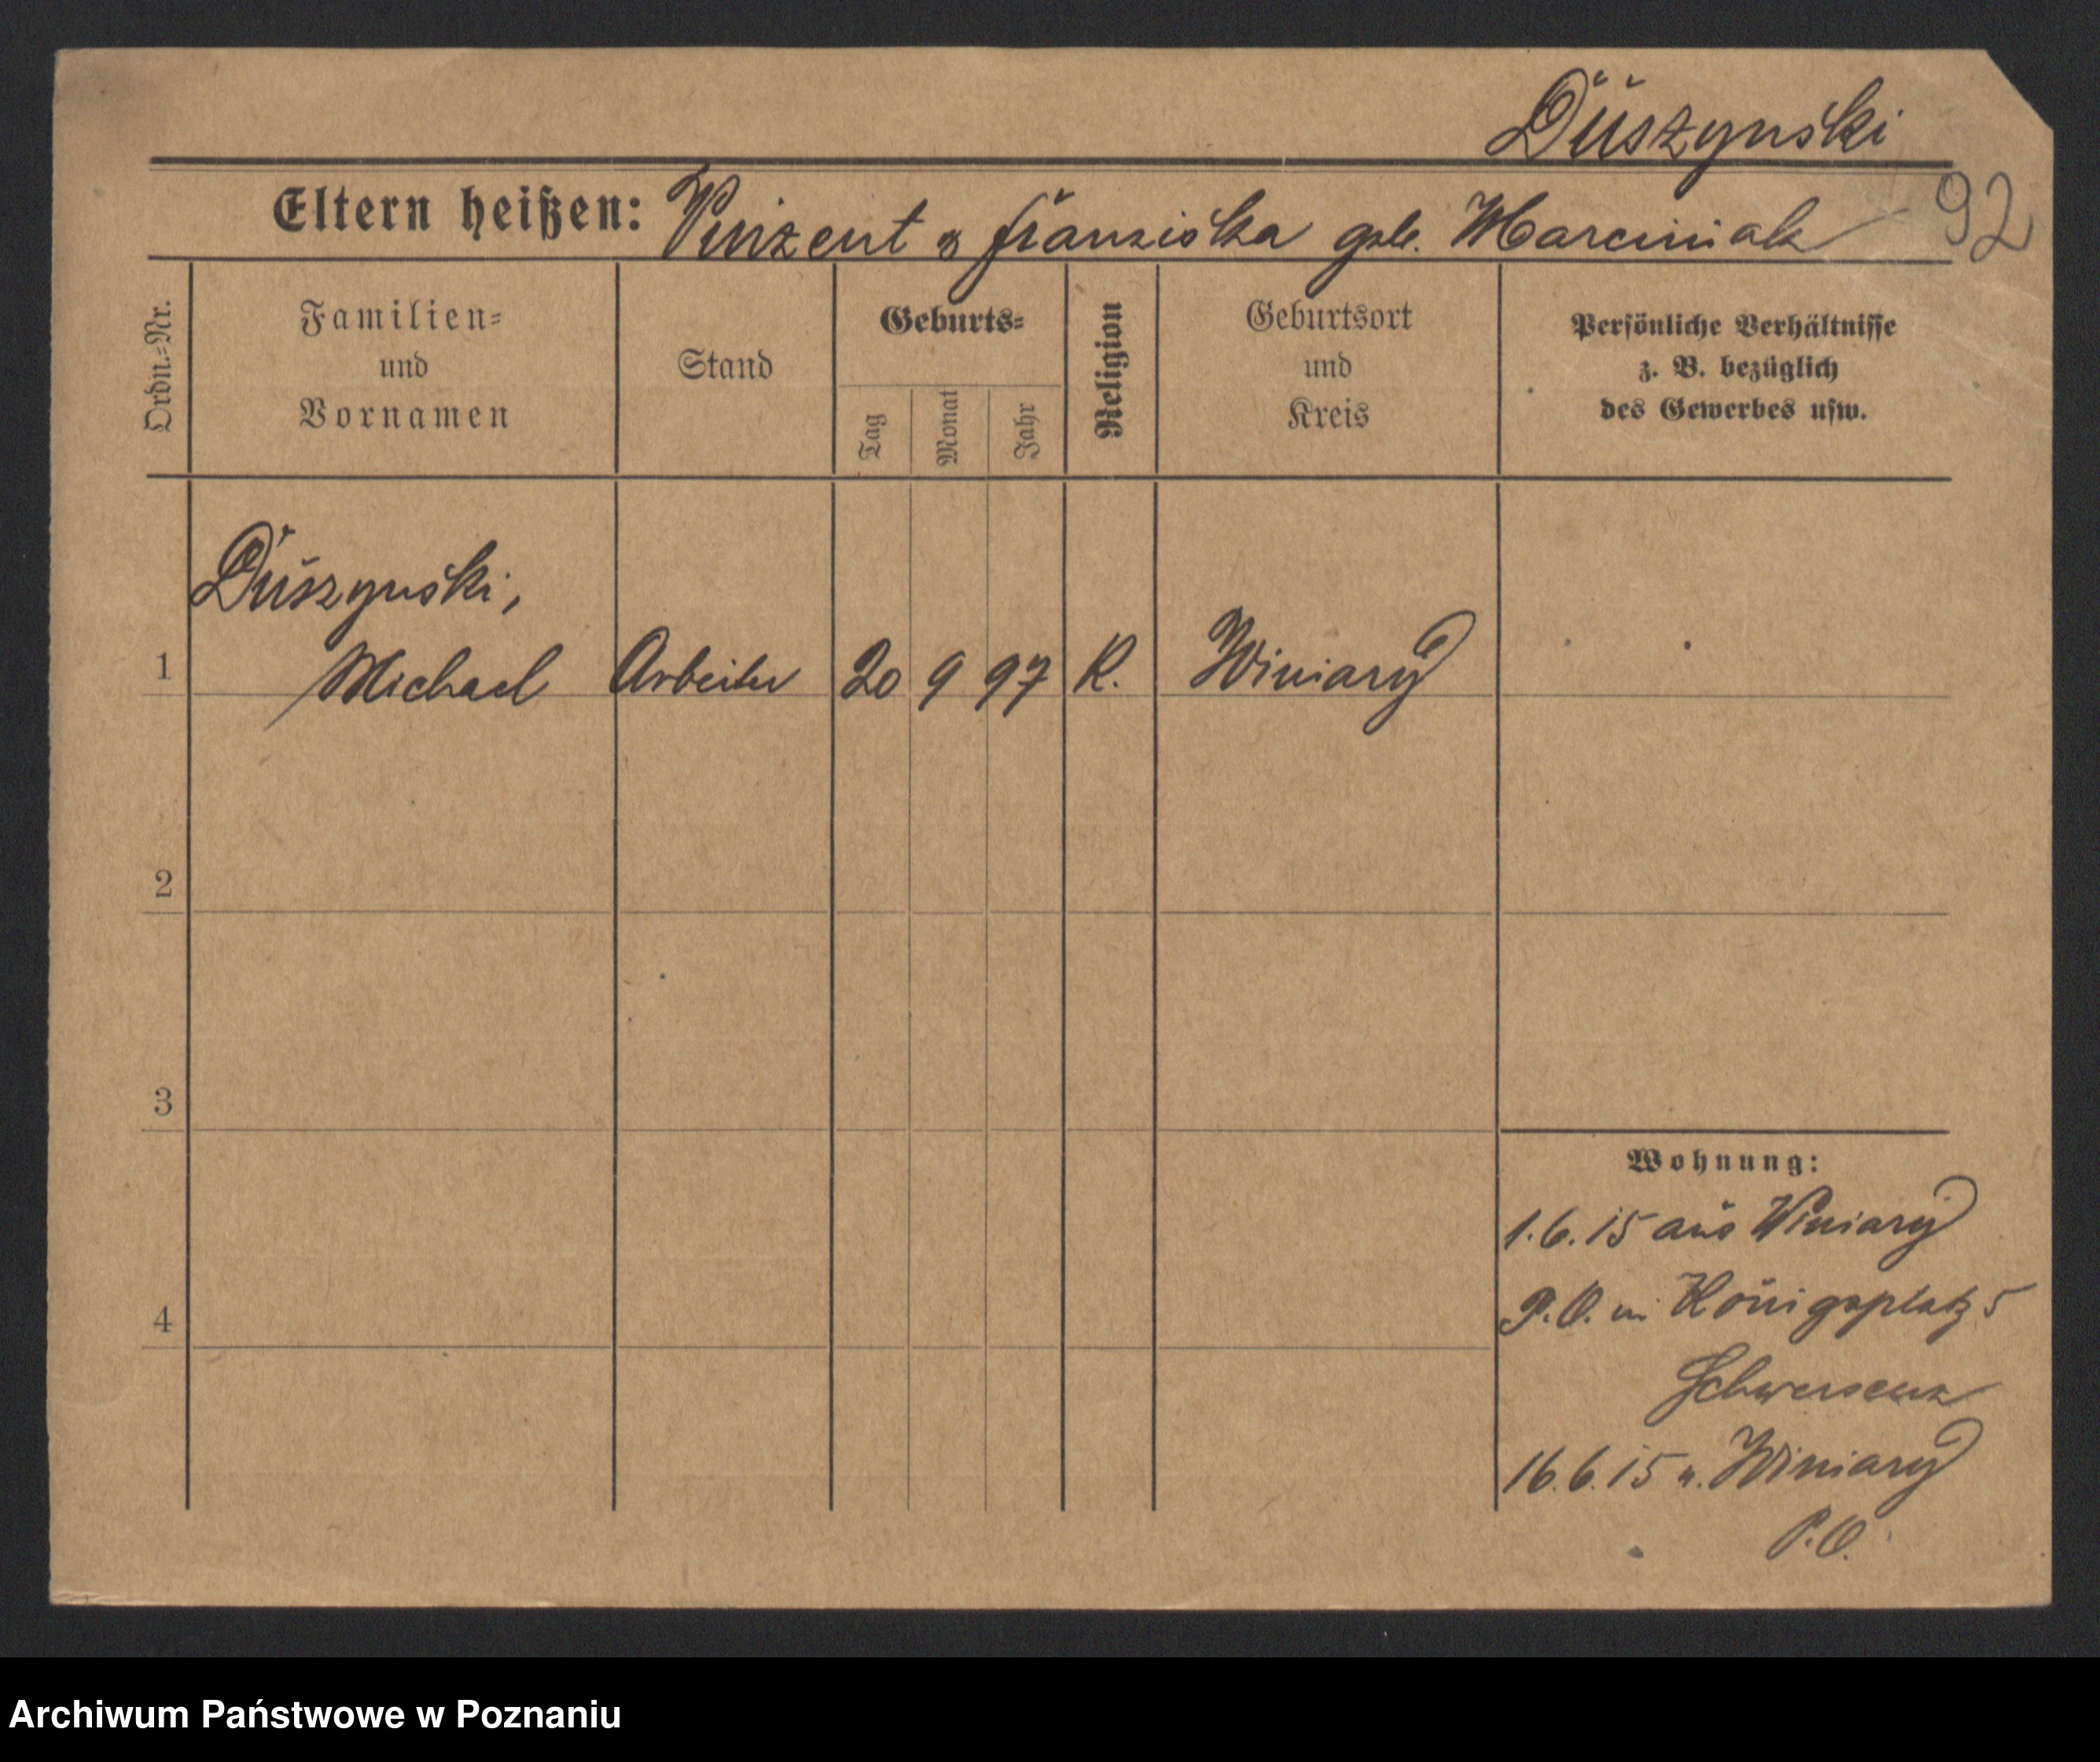 Duszynski
Eltern heißen: Vinzent & Franziska geb. Marciniak
92
Ordn.-Nr.
Familien-
und
Vornamen
Stand
Geburts-
Tag
Monat
Jahr
Religion
Geburtsort
und
Kreis
Persönliche Verhältnisse
z. B. bezüglich
des Gewerbes usw.
Duszynski,
1 Michael Arbeiter 20 9 97 K. Winiary
2
3
4
Wohnung:
1.6.15 aus Winiary
P.O. in Königsplatz 5
Schwersenz
16.6.15 n. Winiary
P.O.
Archiwum Państwowe w Poznaniu